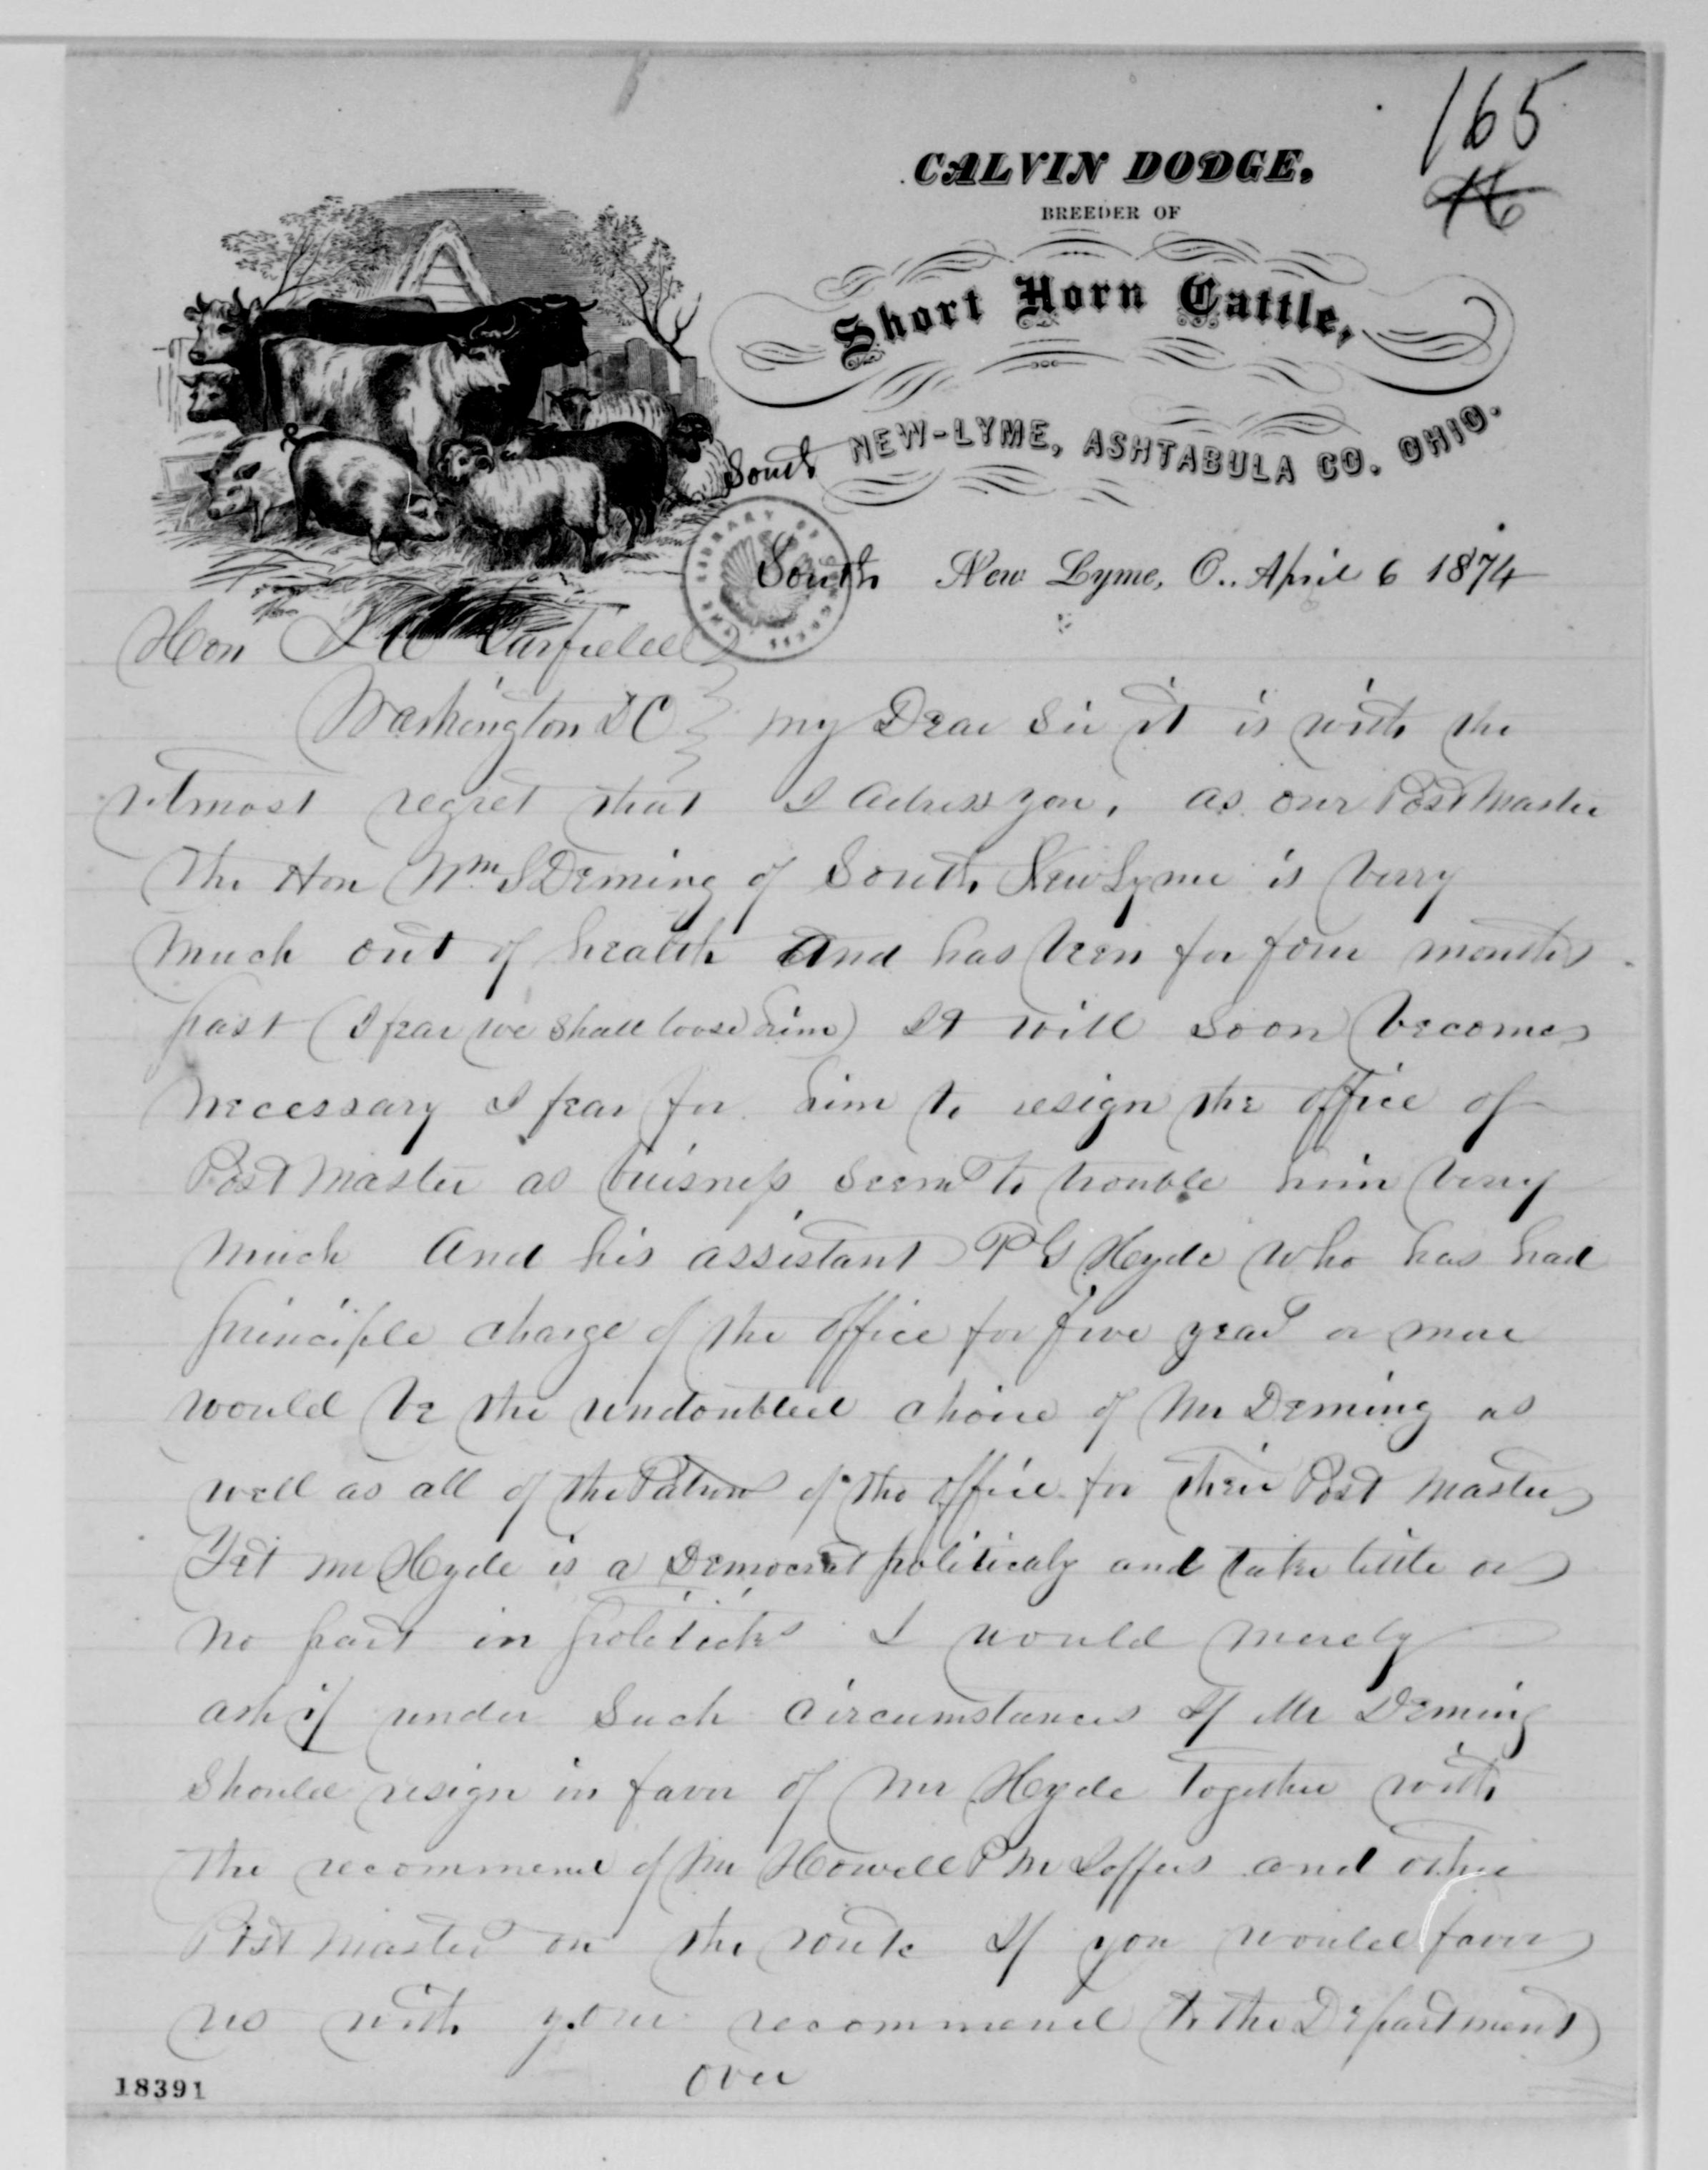 165
16
CALVIN DODGE,
BREEDER OF
Short Horn Cattle,
South NEW-LYME, ASHTABULA CO. OHIO.
South New Lyme, O., April 6 1874
Hon J A Garfield
Washington DC my Dear Sir it is with the
utmost regret that I adress you, as our Post Master
the Hon Wm S Deming of South New Lyme is verry
much out of health And has been for four months
past (I fear we shall loose him) It will soon become
necessary I fear for him to resign the office of
Post Master as buisness seems to trouble him verry
much And his assistant P G Hyde who has had
principle charge of the office for five years or more
would be the undoubted choice of Mr Deming as
well as all of the Patrons of the office for their Post Master
Yet Mr Hyde is a Democrat politicaly and take little or
no part in politicks I would merely
ask if under Such circumstances If Mr Deming
Should resign in favor of Mr Hyde Together with
the recommend of Mr Howell P M and other
Post Masters on the route If you would favor
us with your recommend to the Department
over
18391